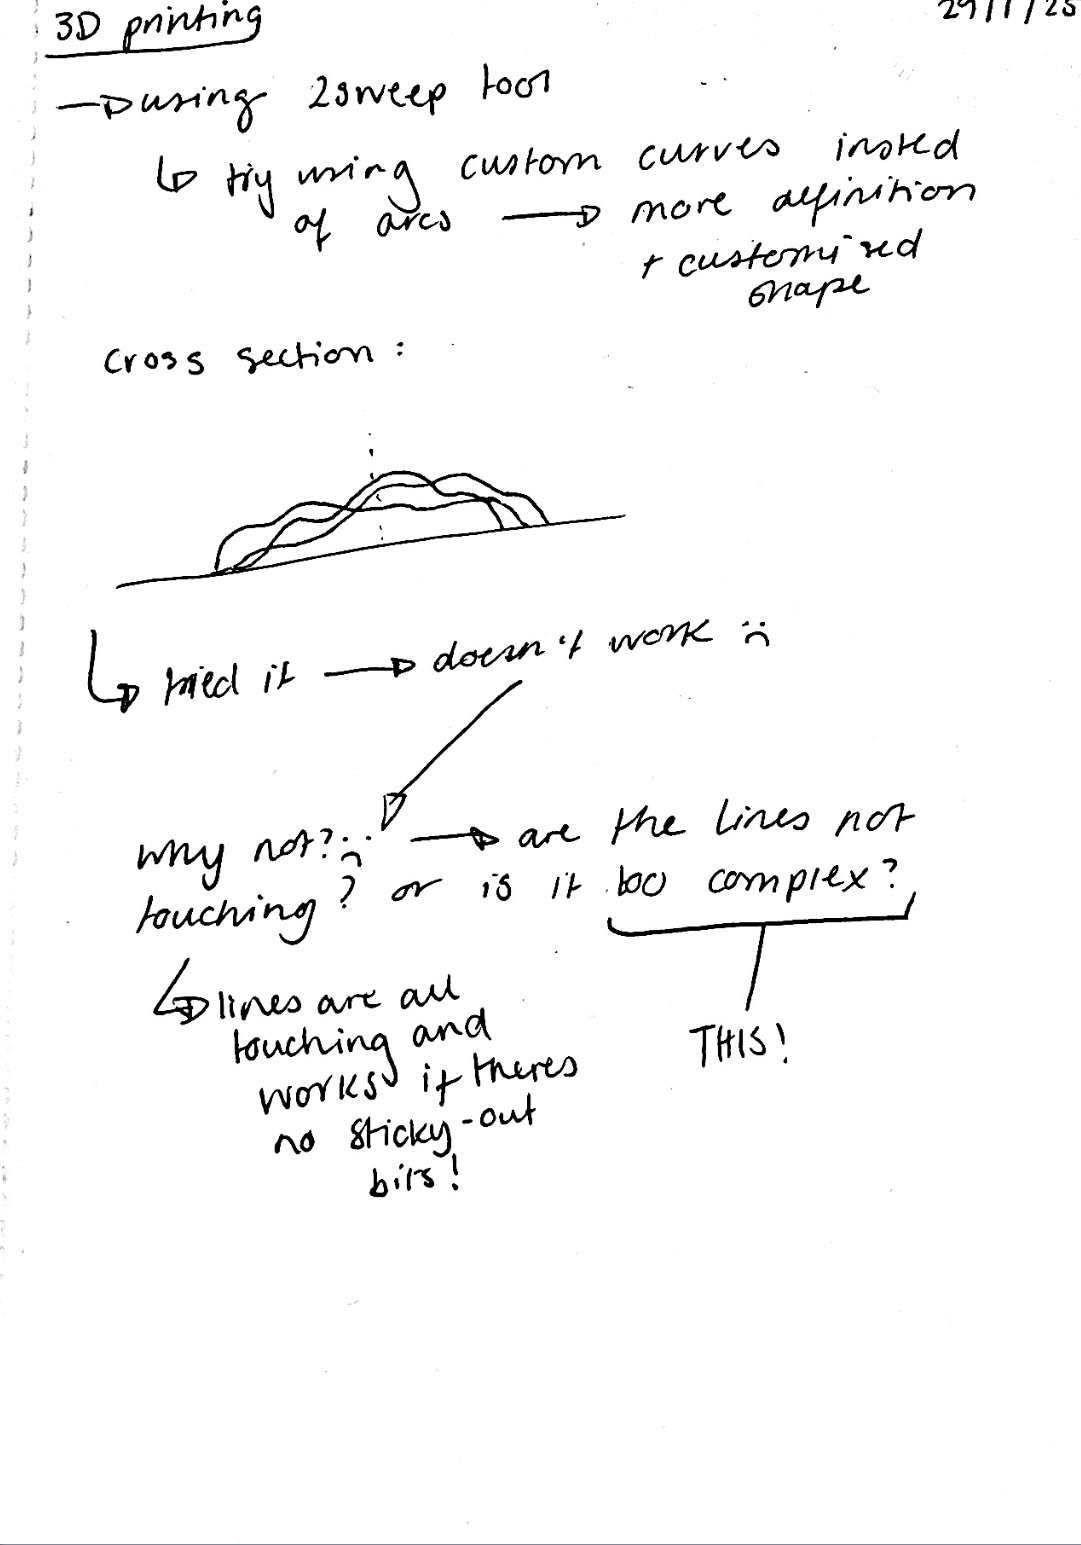 3D printing
29/1/25
→ using 2sweep tool
↳ try using custom curves insted
of arcs → more definition
+ customised
shape
cross section:
↳ tried it → doesn't work :(
why not? :( → are the lines not
touching? or is it too complex?
↳ lines are all
touching and
works if theres
no sticky-out
bits!
THIS!